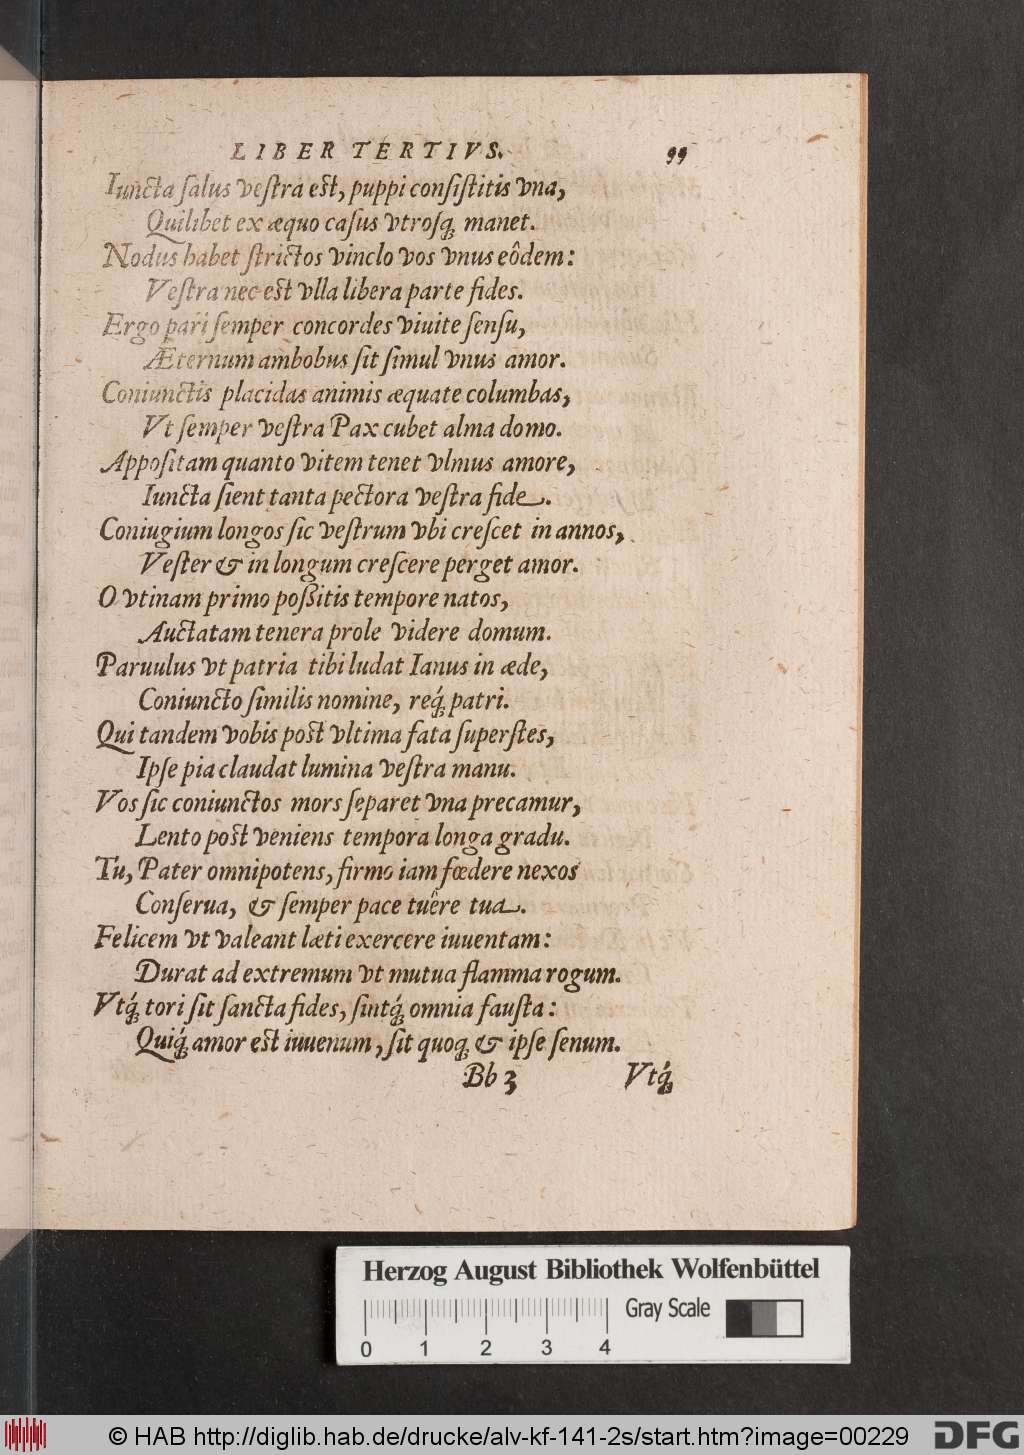 LIBER TERTIVS. 99
Iuncta ſalus veſtra eſt, puppi conſiſtitis vna,
Quilibet ex æquo caſus vtroſq́ꝫ manet.
Nodus habet ſtrictos vinclo vos vnus eôdem:
Veſtra nec eſt vlla libera parte fides.
Ergo pari ſemper concordes viuite ſenſu,
Æternum ambobus ſit ſimul vnus amor.
Coniunctis placidas animis æquate columbas,
Vt ſemper veſtra Pax cubet alma domo.
Appoſitam quanto vitem tenet vlmus amore,
Iuncta ſient tanta pectora veſtra fide.
Coniugium longos ſic veſtrum vbi creſcet in annos,
Veſter & in longum creſcere perget amor.
O vtinam primo poßitis tempore natos,
Auctatam tenera prole videre domum.
Paruulus vt patria tibi ludat Ianus in æde,
Coniuncto ſimilis nomine, req́ꝫ patri.
Qui tandem vobis poſt vltima fata ſuperſtes,
Ipſe pia claudat lumina veſtra manu.
Vos ſic coniunctos mors ſeparet vna precamur,
Lento poſt veniens tempora longa gradu.
Tu, Pater omnipotens, firmo iam fœdere nexos
Conſerua, & ſemper pace tuêre tua.
Felicem vt valeant læti exercere iuuentam:
Durat ad extremum vt mutua flamma rogum.
Vtq́ꝫ tori ſit ſancta fides, ſintq́ꝫ omnia fauſta:
Quiq́ꝫ amor eſt iuuenum, ſit quoqꝫ & ipſe ſenum.
Bb 3 Vtq́ꝫ
Herzog August Bibliothek Wolfenbüttel
Gray Scale
0 1 2 3 4
© HAB http://diglib.hab.de/drucke/alv-kf-141-2s/start.htm?image=00229
DFG